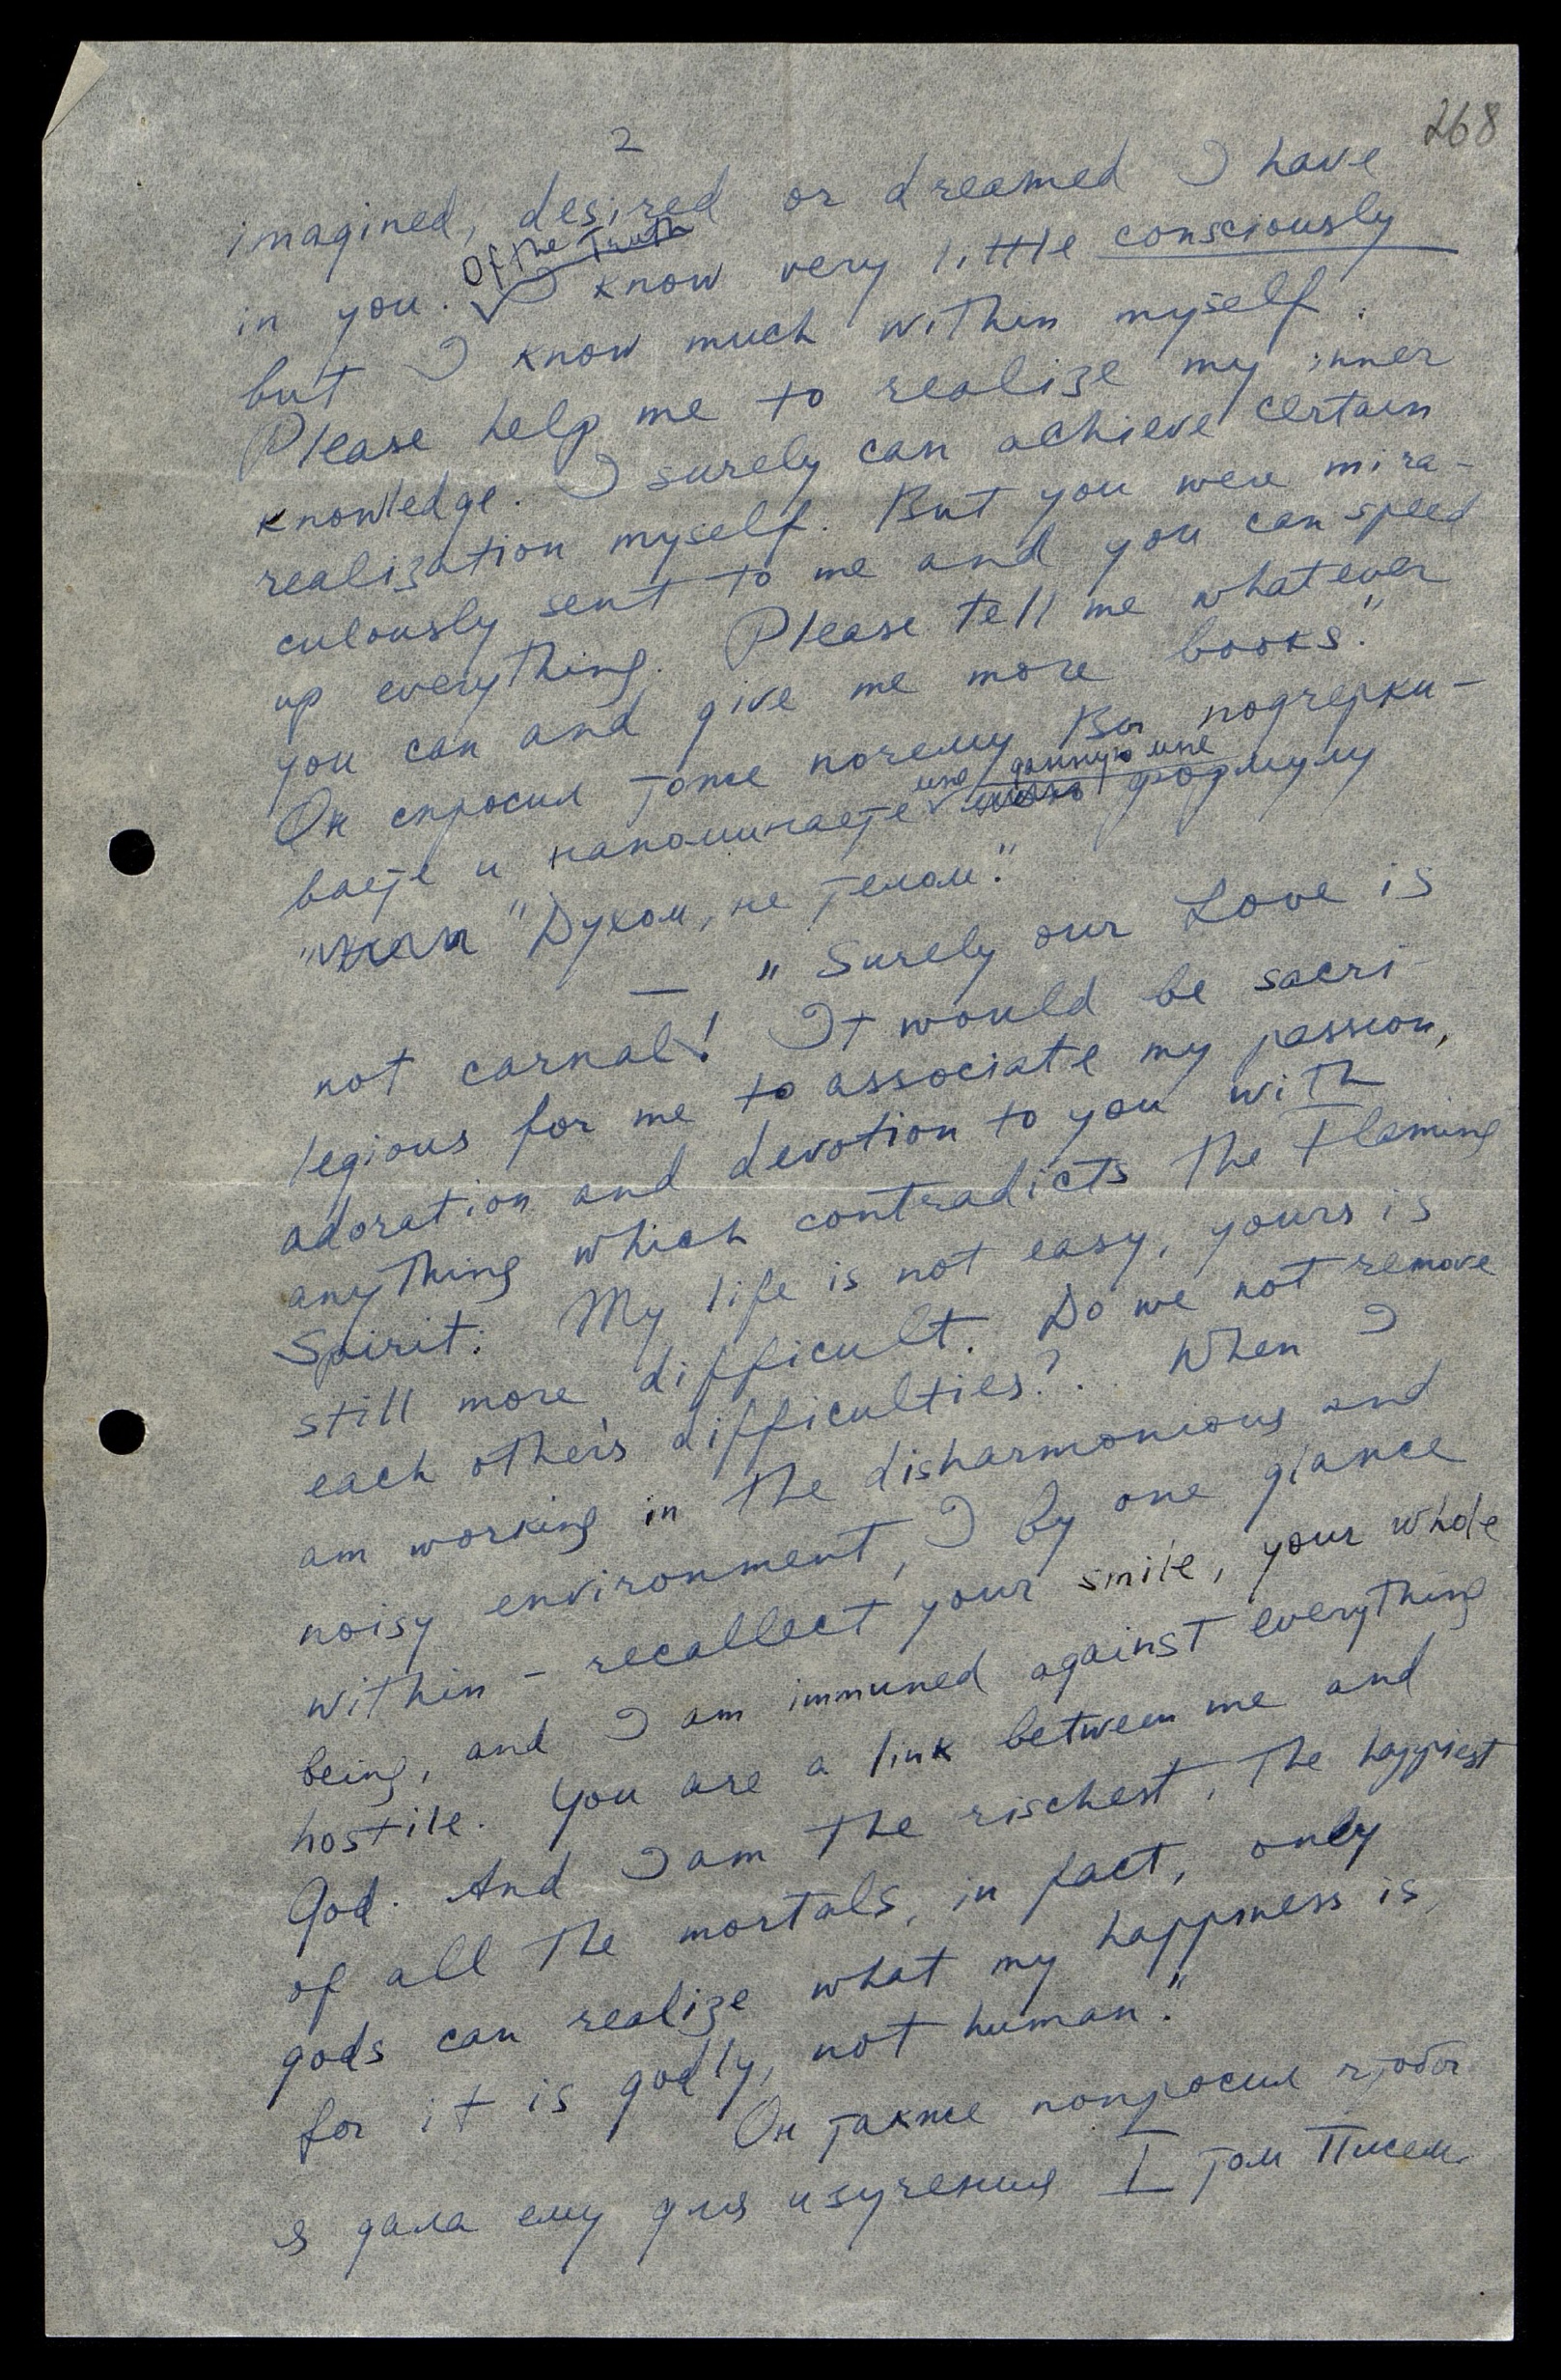 268
2
imagined, desired or dreamed I have
in you. Of the Truth I know very little consciously
but I know much within myself.
Please help me to realize my inner
knowledge. I surely can achieve certain
realization myself. But you were mira-
culously sent to me and you can speed
up everything. Please tell me whatever
you can and give me more books."
Он спросил тоже почему Вы подчерки-
ваете и напоминаете мне данную мне формулу
"Духом, не телом".
— "Surely our Love is
not carnal! It would be sacri-
legious for me to associate my passion,
adoration and devotion to you with
anything which contradicts the Flaming
Spirit. My life is not easy, yours is
still more difficult. Do we not remove
each other's difficulties? When I
am working in the disharmonious and
noisy environment, I by one glance
within – recallect your smile, your whole
being, and I am immuned against everything
hostile. You are a link between me and
God. And I am the rischest, the happiest
of all the mortals, in fact, only
gods can realize what my happiness is,
for it is godly, not human."
Он также попросил чтобы
я дала ему для изучения I том Писем